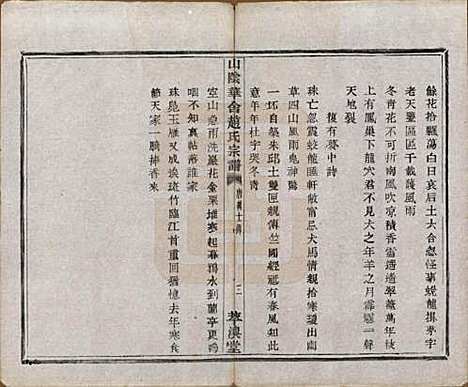 餘花拾飄蕩白日哀后土六合忽怪事蛻龍掛茅宇
老天鑒區區千載護風雨
冬青花不可折南風吹涼積香雪遙遙翠蓋萬年枝
上有鳳巢下龍穴君不見犬之年羊之月霹靂一聲
天地裂
復有夢中詩
珠亡忽震蛟龍匣軒敝寧忘犬馬情親拾寒瓊出幽
草四山風雨鬼神驚
一抔自築朱邱土雙匣親傳竺國經祗有春風知此
意年年杜宇哭冬青
山陰華舍趙氏宗譜
三
萃渙堂
空山急雨洗巖花金粟堆寒起暮鴉水到蘭亭更嗚
咽不知眞帖落誰家
珠鳧玉雁又成埃斑竹臨江首重回猶憶去年寒食
節天家一騎捧香來